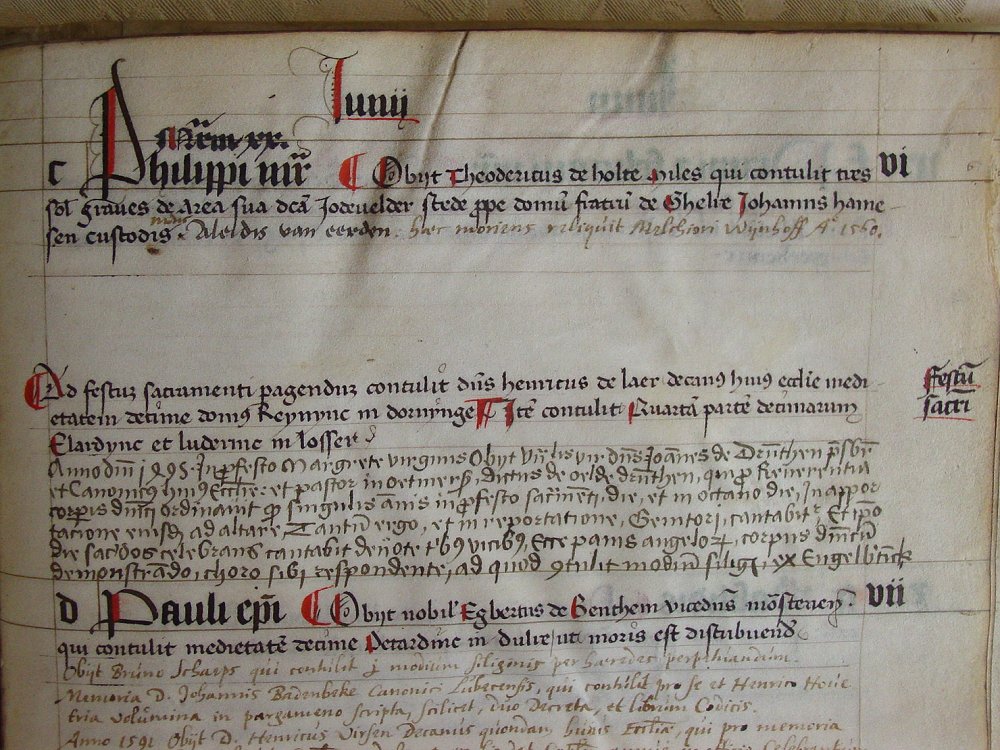 Iunij
c Philippi mr Obijt Theodericus de holte Miles qui contulit tres vi
sol graves de area sua dca Jodevelder stede prope domu fratru de Ghelre Johannis hame
sen custodis. Aleidis van eerden. haec moriens reliquit Melchiori Wijnhoff A° 1560.
Ad festuz sacramenti pagenduz contulit dns henricus de laer decanus huius ecclie medi
etatem decime domus Reynync in dorninge Ite contulit Quarta parte decimarum
Elardync et luderinc in losser
Festu
sacri
Anno dni 1495 In profesto Margrete virginis Obijt vir dns Joannes de Druthen psbr
et Canonicus huius Ecclie et pastor in oetmerss, dictus de oelde druthen, qui pro Reverentia
corporis dnici ordinavit singulis annis in profesto sacrmeti, die, et in octavo die, In appor
tatione eiusd ad altare, Tantu ergo, et in reportatione, Genitori, cantabitr Et ipo
die sacdos celebrans cantabit devote vicibus, Ecce panis angelor, corpus dnicu
demonstrado, choro sibi respondente, ad quod otulit modiu silig, ex Engelbtinck
d Pauli epi Obijt nobil Egbertus de Benthem vicedns mosterien vii
qui contulit medietate decime Petardinc in dulre, uti moris est distribuend
Obijt Bruno Scharps qui contulit j modium siliginis per haeredes perpetuandum.
Memoria D. Johannis Badenbeke Canonici Lubecensis, qui contulit pro se et Henrico Hove
tria volumina in pargameno scripta, scilicet, duo Decreta, et librum Codicis.
Anno 1591 Obijt D. Henricus Virsen Decanus quondam huius Eccliae, qui pro memoria